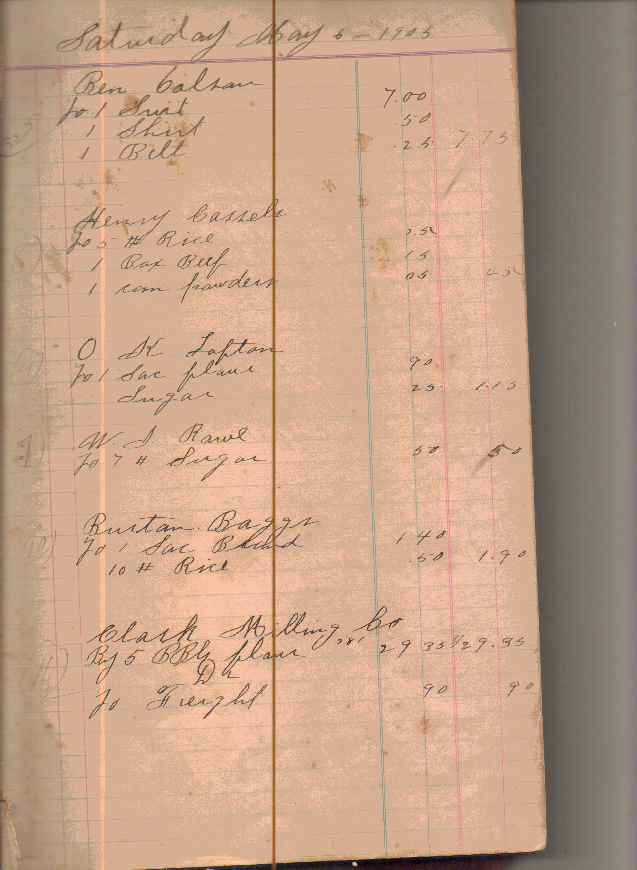 Saturday May 6 - 1905
Ben Colson
To 1 Suit 7.00
1 Shirt 50
1 Belt .25 7 75
Henry Cassels
To 5 # Rice 25
1 Box Beef 15
1 can powders 05 45
O K Lofton
To 1 Sac flour 90
Sugar 25 1.15
W. J. Rawl
To 7 # Sugar 50 50
Rustan Baggs
To 1 Sac 1 40
10 # Rice .50 1.90
Clark Milling Co
By 5 BBls flour 29 35 29.35
Dr
To Freight 90 90